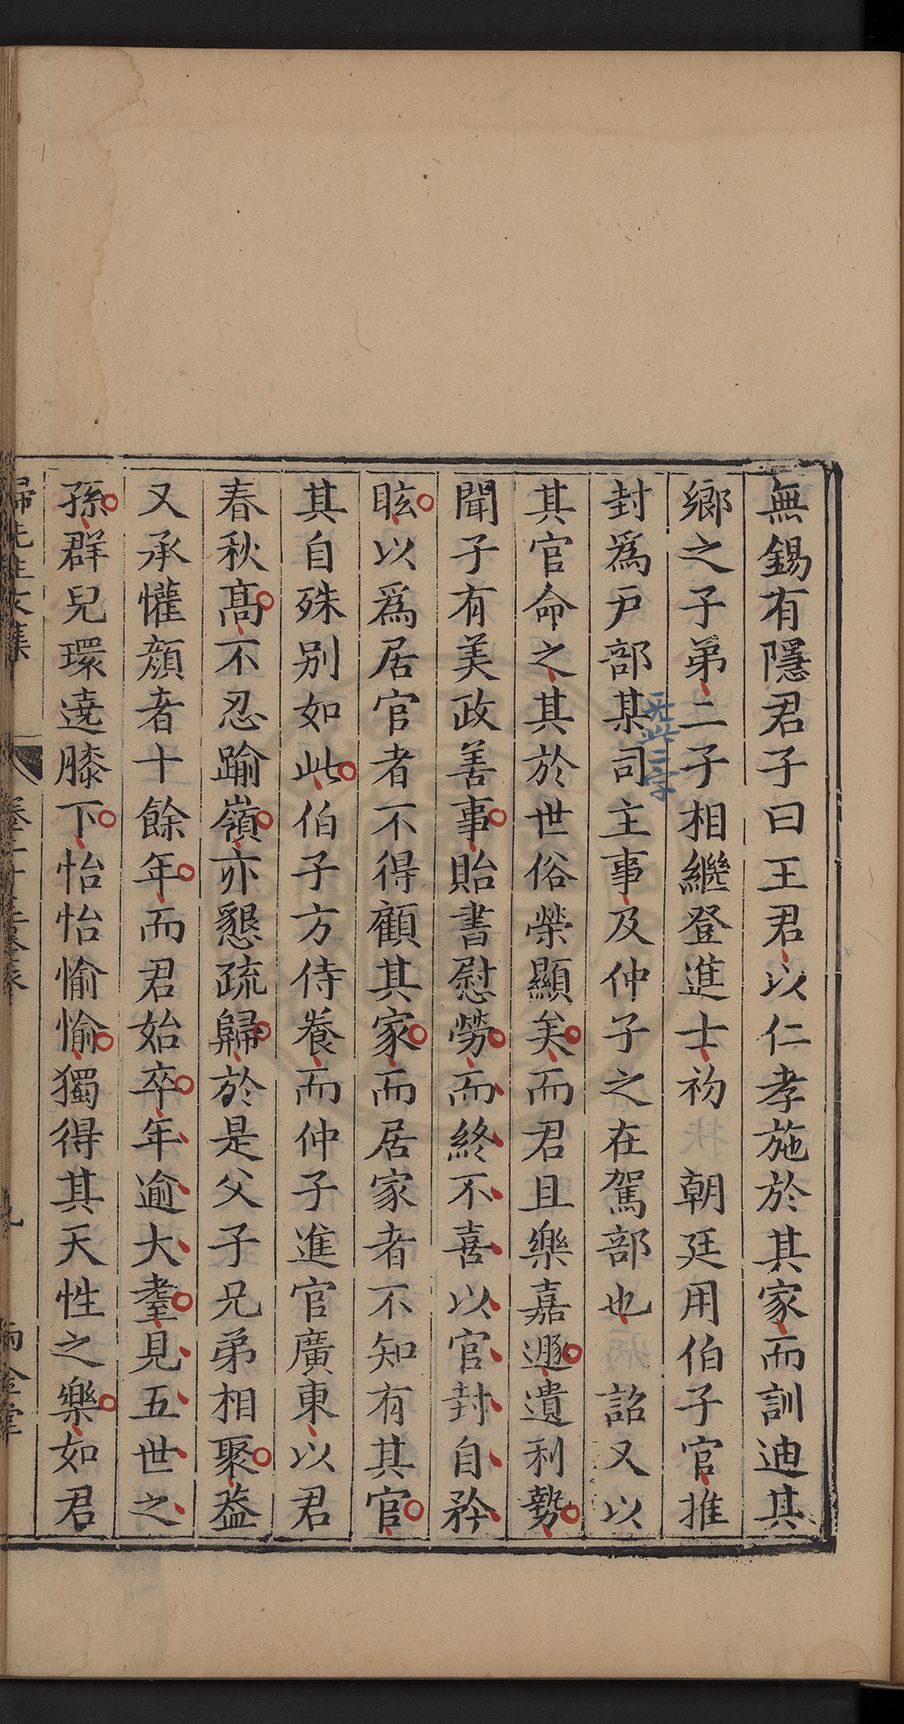 無錫有隱君子曰王君以仁孝施於其家而訓迪其
鄉之子弟二子相繼登進士初　朝廷用伯子官推
封爲戶部某司主事及仲子之在駕部也　詔又以
無此三字
其官命之其於世俗榮顯矣而君且樂嘉遯遺利勢
聞子有美政善事貽書慰勞而終不喜以官封自矜
眩以爲居官者不得顧其家而居家者不知有其官
其自殊别如此伯子方侍養而仲子進官廣東以君
春秋高不忍踰嶺亦懇疏歸於是父子兄弟相聚葢
又承懽顔者十餘年而君始卒年逾大耋見五世之
孫群兒環遶膝下怡怡愉愉獨得其天性之樂如君
歸先生文集　卷二十